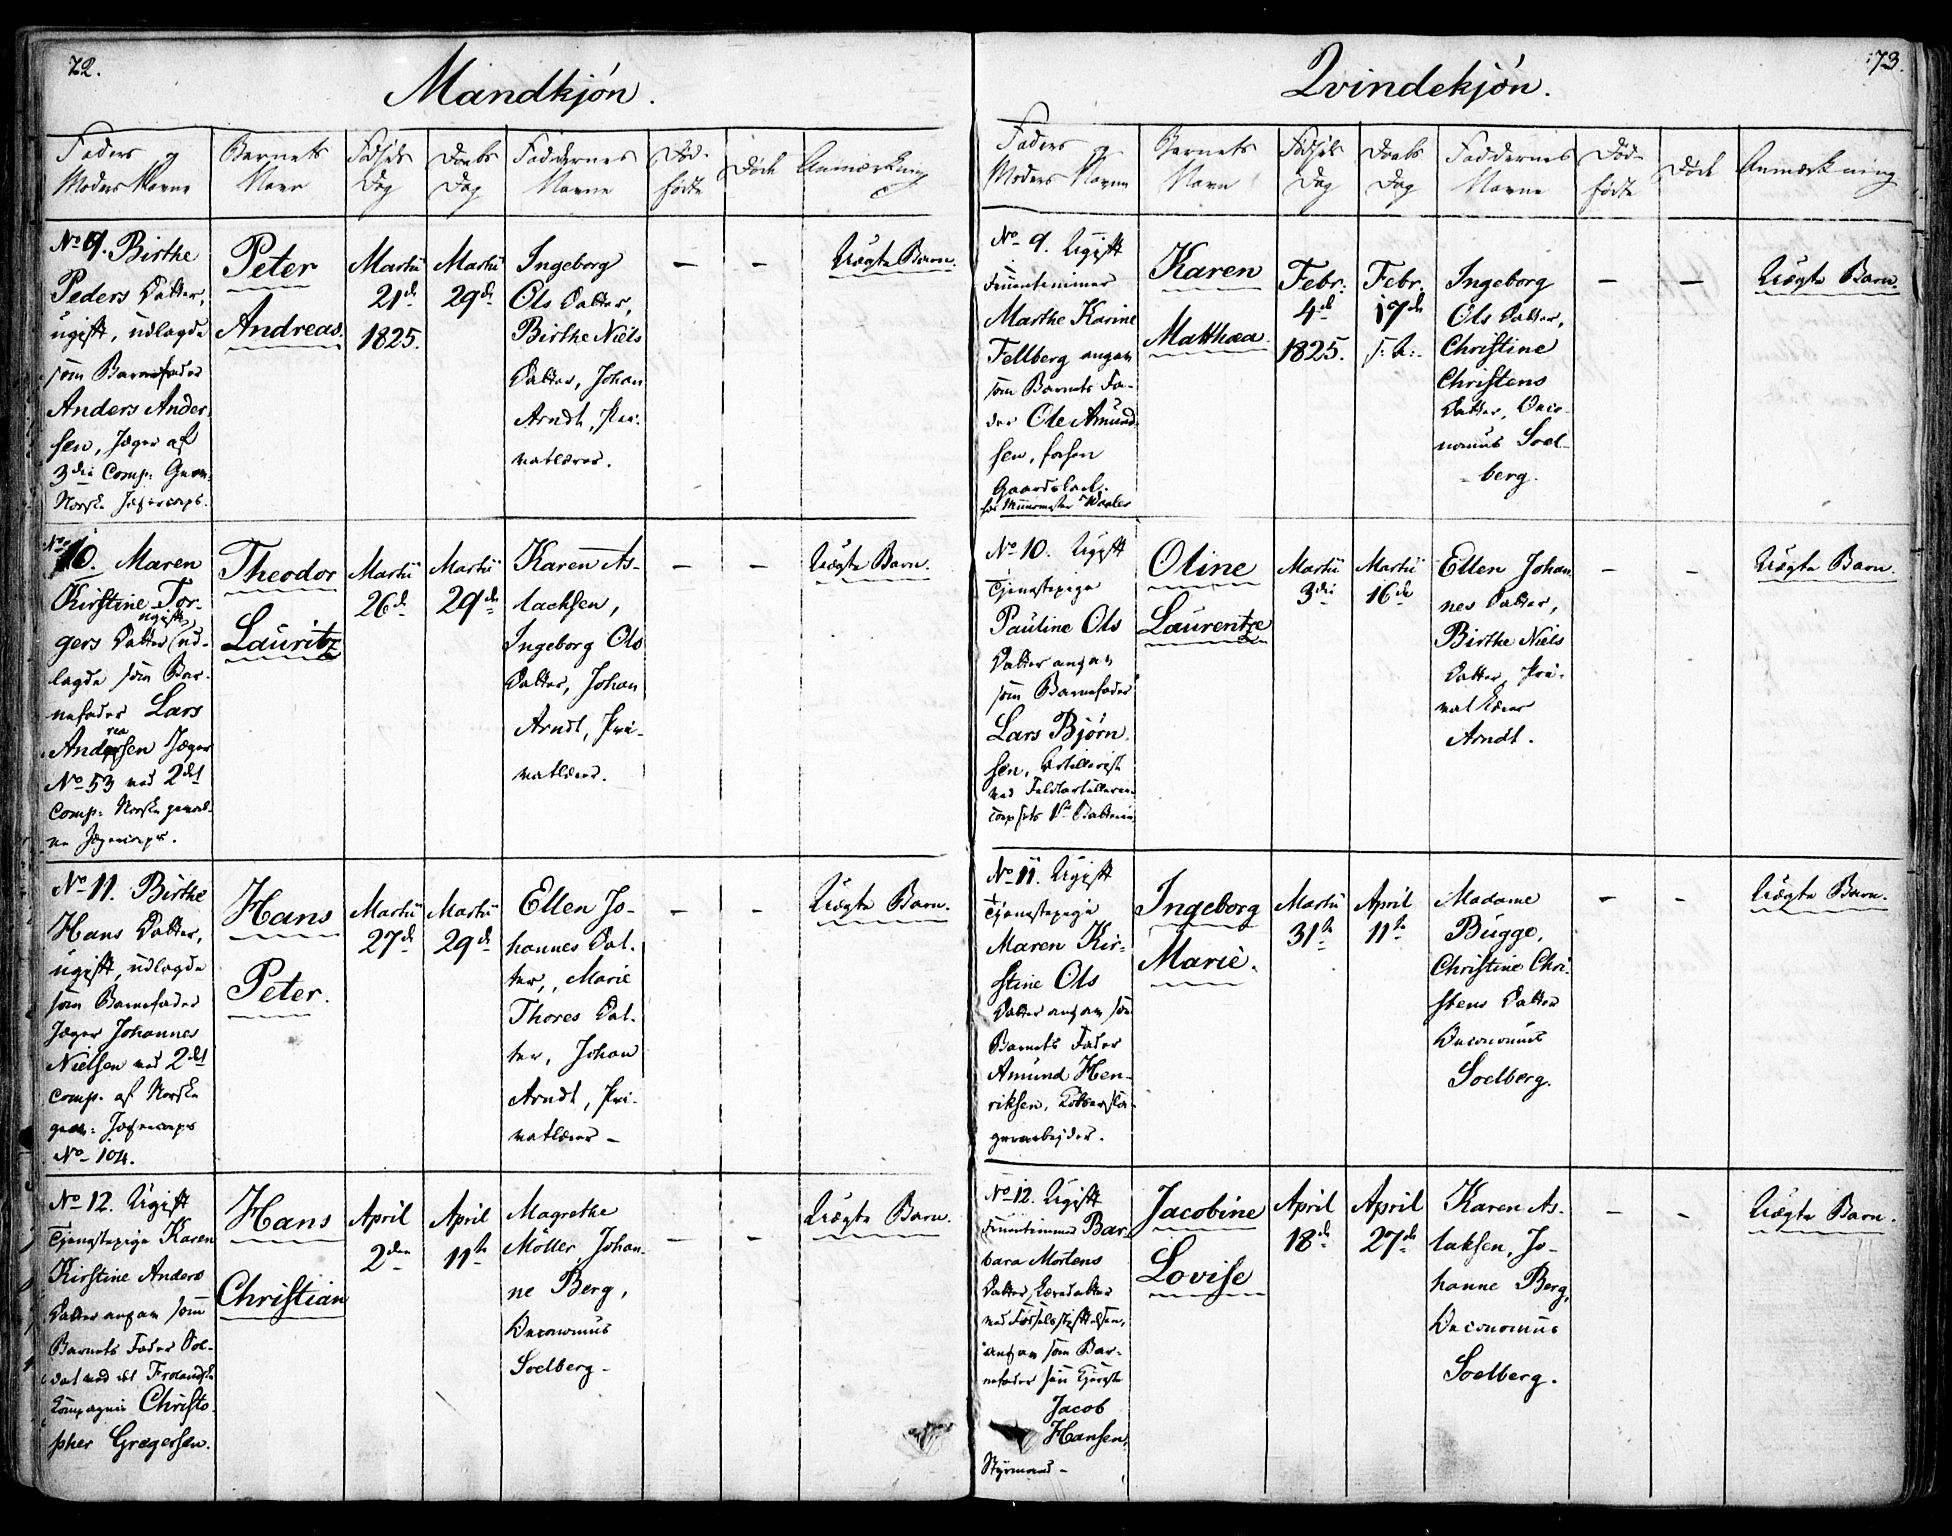 72.
Mandkjön.
Faders og
Moders Navne
Barnets
Navn
Fødsels
Dag
Daabs
Dag
Faddernes
Navne
Død-
fødte
Døde
Anmærkning
No 9. Birthe
Peders Datter,
ugift, udlagde
som Barnefader
Anders Ander-
sen, Jæger af
3die Comp: Gevor.
Norske Jægercorps.
Peter
Andreas.
Martii
21de
1825.
Martii
29de
Ingeborg
Ols Datter,
Birthe Niels
Datter, Johan
Arndt, Pri-
vatlærer.
—
—
Uægte Barn.
No 10. Maren
Kirstine Tor-
gers Datter ugift, ud-
lagde som Bar-
nefader Lars
Andreasen Jæger
No 53 ved 2det
Comp: Norske gevor-
ne Jægercorps.
Theodor
Lauritz
Martii
26de
Martii
29de
Karen As-
lachsen,
Ingeborg Ols
Datter, Johan
Arndt, Pri-
vatlærer.
Uægte Barn.
No 11. Birthe
Hans Datter,
ugift, udlagde
som Barnefader
Jæger Johannes
Nielsen ved 2det
Comp. af Norske
gevor: Jægercorps
No 104.
Hans
Peter.
Martii
27de
Martii
29de
Ellen Jo-
hannes Dat-
ter, Marie
Thores Dat-
ter, Johan
Arndt, Pri-
vatlærer —
—
—
Uægte Barn.
No 12. Ugift
Tjenestepige Karen
Kirstine Anders
Datter angav som
Barnets Fader Sol-
dat ved det Frolandske
Compagnie Christo-
pher Gregersen.
Hans
Christian
April
2den
April
11te
Magrethe
Möller, Johan-
ne Berg,
Oeconomus
Soelberg —
—
—
Uægte Barn.
73.
Qvindekjön.
Faders og
Moders Navne
Barnets
Navn
Fødsels
Dag
Daabs
Dag
Faddernes
Navne
Død-
fødte
Død
Anmærkning
No 9. Ugift
Fruentimmer
Marthe Karine
Fellberg angav
som Barnets Fa-
der Ole Amund-
sen, forhen
Gaardskarl
hos Muurmester Waaler
Karen
Matthæa.
Febr.
4de
1825.
Febr.
17de
s: A:.
Ingeborg
Ols Datter,
Christine
Christens
Datter, Oeco-
nomus Soel-
berg.
—
—
Uægte Barn.
No 10. Ugift
Tjenestepige
Pauline Ols
Datter angav
som Barnefader
Lars Bjørn-
sen, Artillerist
ved Feldtartillerie-
corpsets Batterie
Oline
Laurentze
Martii
3die
Martii
16de
Ellen Johan-
nes Datter,
Birthe Niels
Datter, Pri-
vatlærer
Arndt.
—
—
Uægte Barn.
No 11. Ugift
Tjenestepige
Maren Kir-
stine Ols
Datter angav som
Barnets Fader
Amund Hen-
riksen, Kobbersla-
gerarbejder.
Ingeborg
Marie.
Martii
31te
April
11te
Madame
Bugge,
Christine Chri-
stens Datter
Oeconomus
Soelberg.
—
—
Uægte Barn.
No 12. Ugift
Fruentimmer Bar-
bara Mortens
Datter, Læredatter
ved Fødselsstiftelsen,
angav som Bar-
nefader sin Kjæreste
Jacob
Hansen,
Styrmand —
Jacobine
Lovise
April
18de
April
27de
Karen As-
laksen, Jo-
hanne Berg,
Oeconomus
Soelberg.
—
—
Uægte Barn.